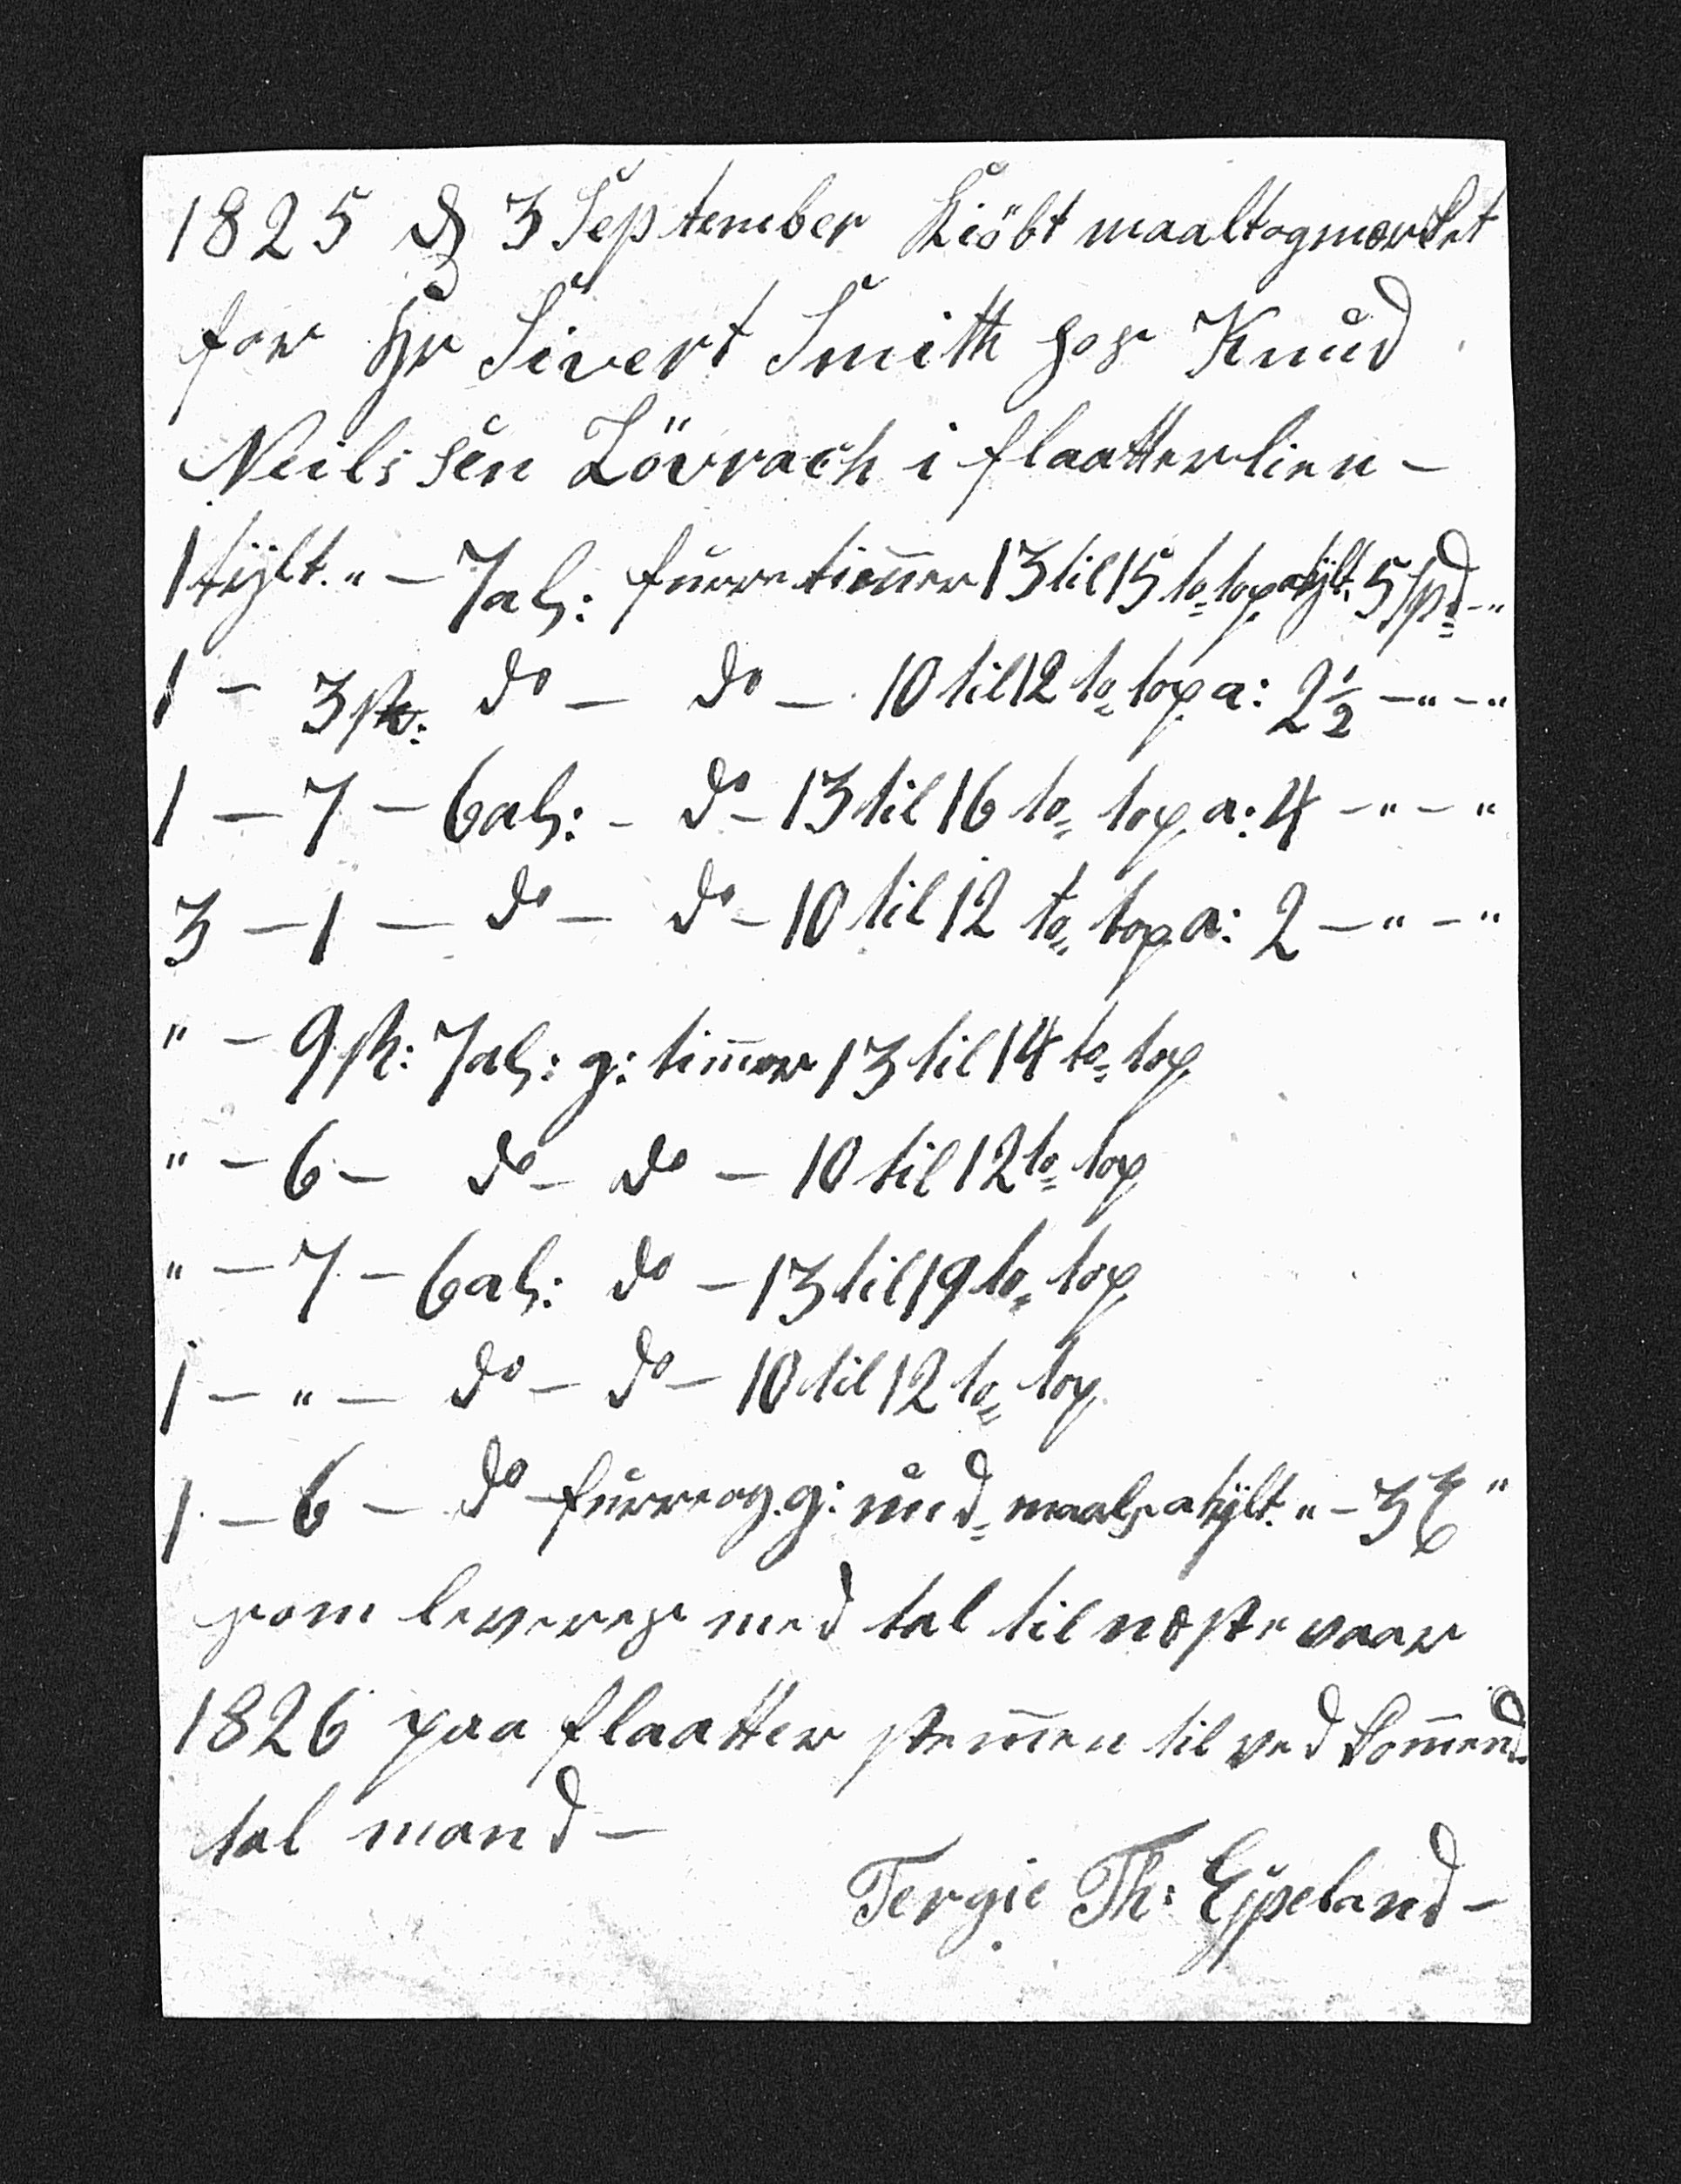 1825 d 3 September Kiöbt maalt og mærket
for Hr Sivert Smith hos Knud
Neilssen Lövrach i flaatterlien -
1 tÿlt. " - 7 al: furre tim̄er 13 til 15 to= top a tÿlt. 5 Spd= - "
1 - 3 st: do - do - 10 til 12 to= top a: 2 1/2 - " - "
1 - 7 - 6 al: - do - 13 til 16 to= top a: 4 - " - "
3 - 1 - do - do - 10 til 12 to= top a: 2 - " - "
" - 9 st: 7 al: g: tim̄er 13 til 14 to= top
" - 6 - do - do - 10 til 12 to= top
" - 7 - 6 al: do - 13 til 19 to= top
1 - " - do - do - 10 til 12 to= top
1 - 6 - do - furre og g: und= maals a tÿlt. " - 3 "
som leveres med tal til næste vaar
1826 paa flaatter stem̄en til ved kom̄end
tal mand -
Tergie Th: Espeland -